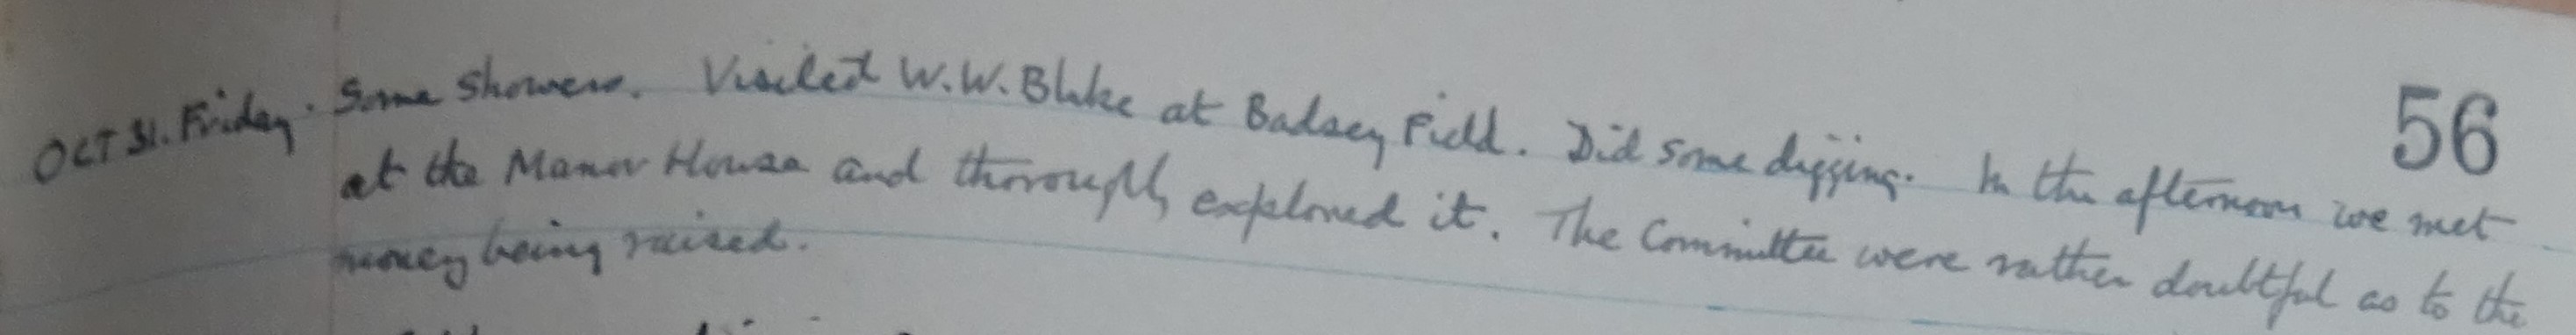 56
OCT 31. Friday. Some showers. Visited W.W. Blake at Badsey Field. Did some digging. In the afternoon we met
at the Manor House and thoroughly explored it. The Committee were rather doubtful as to the
money being raised.